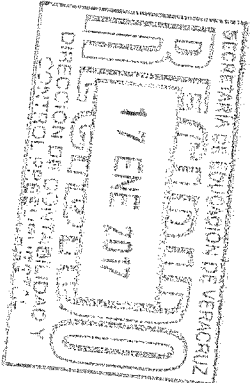 SECRETARIA DE EDUCACION DE VERACRUZ
RECIBIDO
17 ENE 2017
DIRECCION DE CONTABILIDAD Y
CONTROL PRESUPUESTAL